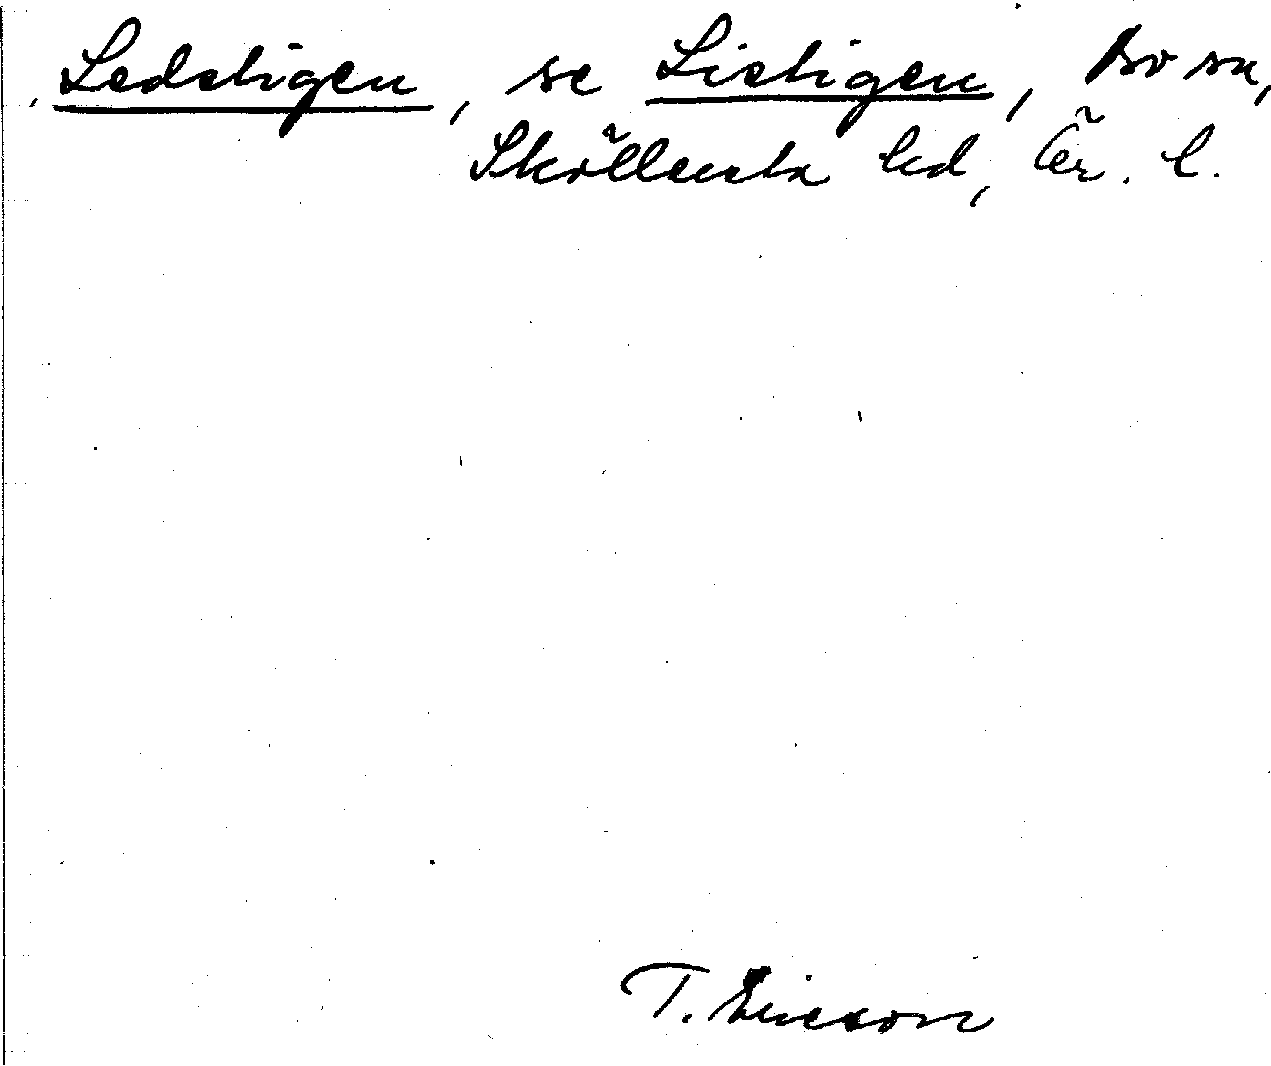 Ledstigen, se Listigen, Bo sn,
Sköllersta hd, Ör. l.
T. Ericson